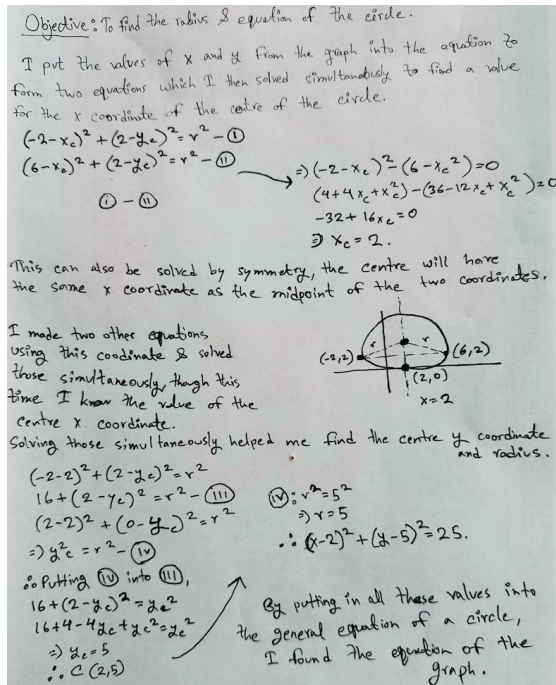 Objective: To find the radius & equation of the circle.
I put the values of x and y from the graph into the equation to
form two equations which I then solved simultanously to find a value
for the x coordinate of the centre of the circle.
(-2-x_c)² + (2-y_c)² = r² - (I)
(6-x_c)² + (2-y_c)² = r² - (II)
(I) - (II)
⇒ (-2-x_c)² - (6-x_c²) = 0
(4+4x_c+x_c²) - (36-12x_c+x_c²) = 0
-32 + 16x_c = 0
⇒ x_c = 2.
This can also be solved by symmetry, the centre will have
the same x coordinate as the midpoint of the two coordinates.
I made two other equations
using this coodinate & solved
those simultaneously, though this
time I know the value of the
centre x coordinate.
(-2,2)
r
r
(6,2)
(2,0)
x=2
Solving those simultaneously helped me find the centre y coordinate
and radius.
(-2-2)² + (2-y_c)² = r²
16 + (2-y_c)² = r² - (III)
(2-2)² + (0-y_c)² = r²
⇒ y_c² = r² - (IV)
∴ Putting (IV) into (III),
16 + (2-y_c)² = y_c²
16+4-4y_c+y_c² = y_c²
⇒ y_c = 5
∴ C (2,5)
(IV): r² = 5²
⇒ r = 5
∴ (x-2)² + (y-5)² = 25.
By putting in all these values into
the general equation of a circle,
I found the equation of the
graph.